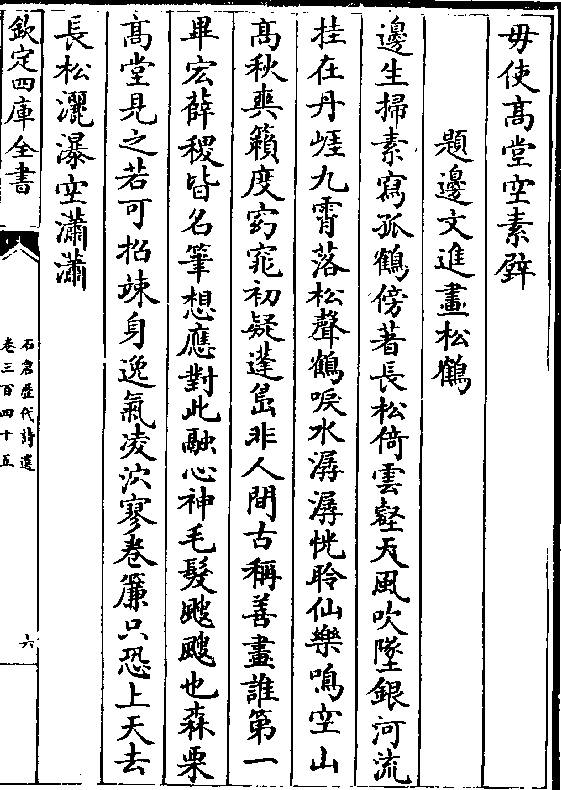 毋使髙堂空素壁
題邊文進畫松鶴
邊生掃素寫孤鶴傍著長松倚雲壑天風吹墜銀河流
挂在丹崖九霄落松聲鶴唳水潺潺恍聆仙樂鳴空山
髙秋爽籟度窈窕初疑蓬島非人間古稱善畫誰第一
畢宏薛稷皆名筆想應對此融心神毛髮颼颼也森栗
髙堂見之若可招竦身逸氣凌泬寥卷簾只恐上天去
長松灑瀑空瀟瀟
欽定四庫全書
石倉歷代詩選
卷三百四十五
六